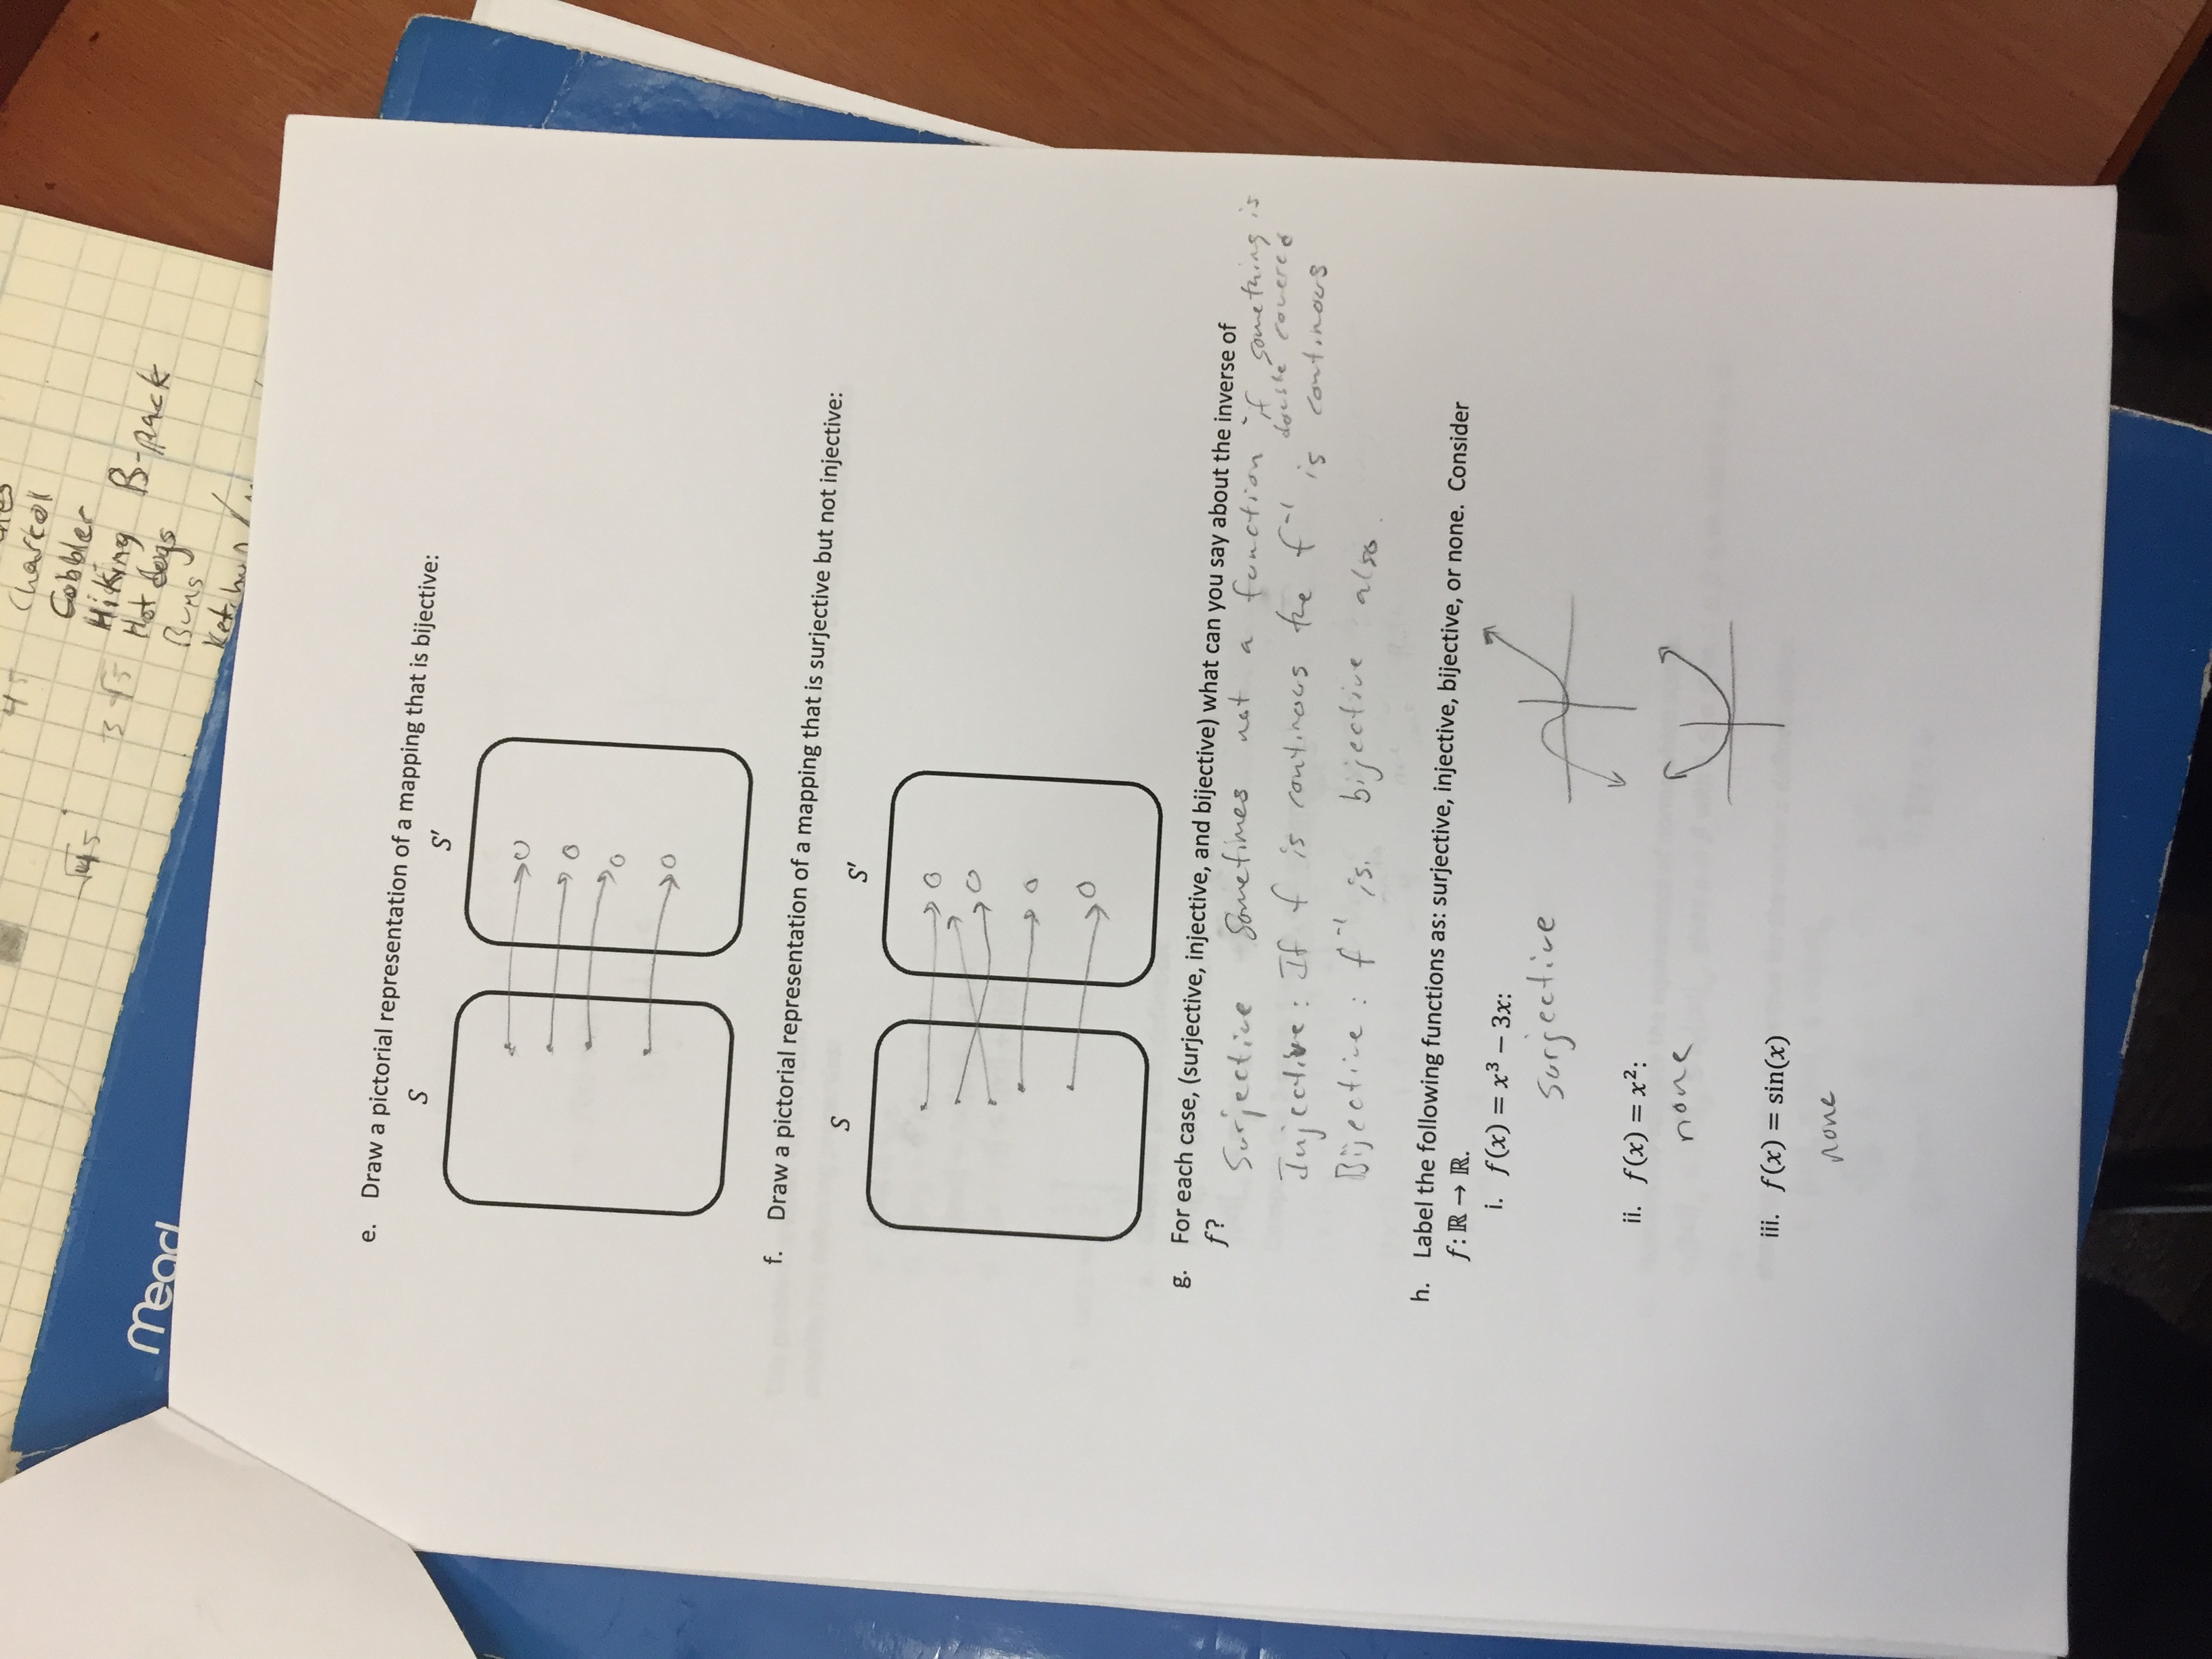 45
Charcol
Cobbler
√45
3√5
Hiking B-pack
Hot dogs
Buns
Mead
e. Draw a pictorial representation of a mapping that is bijective:
S S′
f. Draw a pictorial representation of a mapping that is surjective but not injective:
S S′
g. For each case, (surjective, injective, and bijective) what can you say about the inverse of
f?
Surjective Sometimes not a function if something is
double covered
Injective: If f is continous the f⁻¹ is continous
Bijective: f⁻¹ is bijective also.
h. Label the following functions as: surjective, injective, bijective, or none. Consider
f: ℝ → ℝ.
i. f(x) = x³ − 3x:
surjective
ii. f(x) = x²:
none
iii. f(x) = sin(x)
none